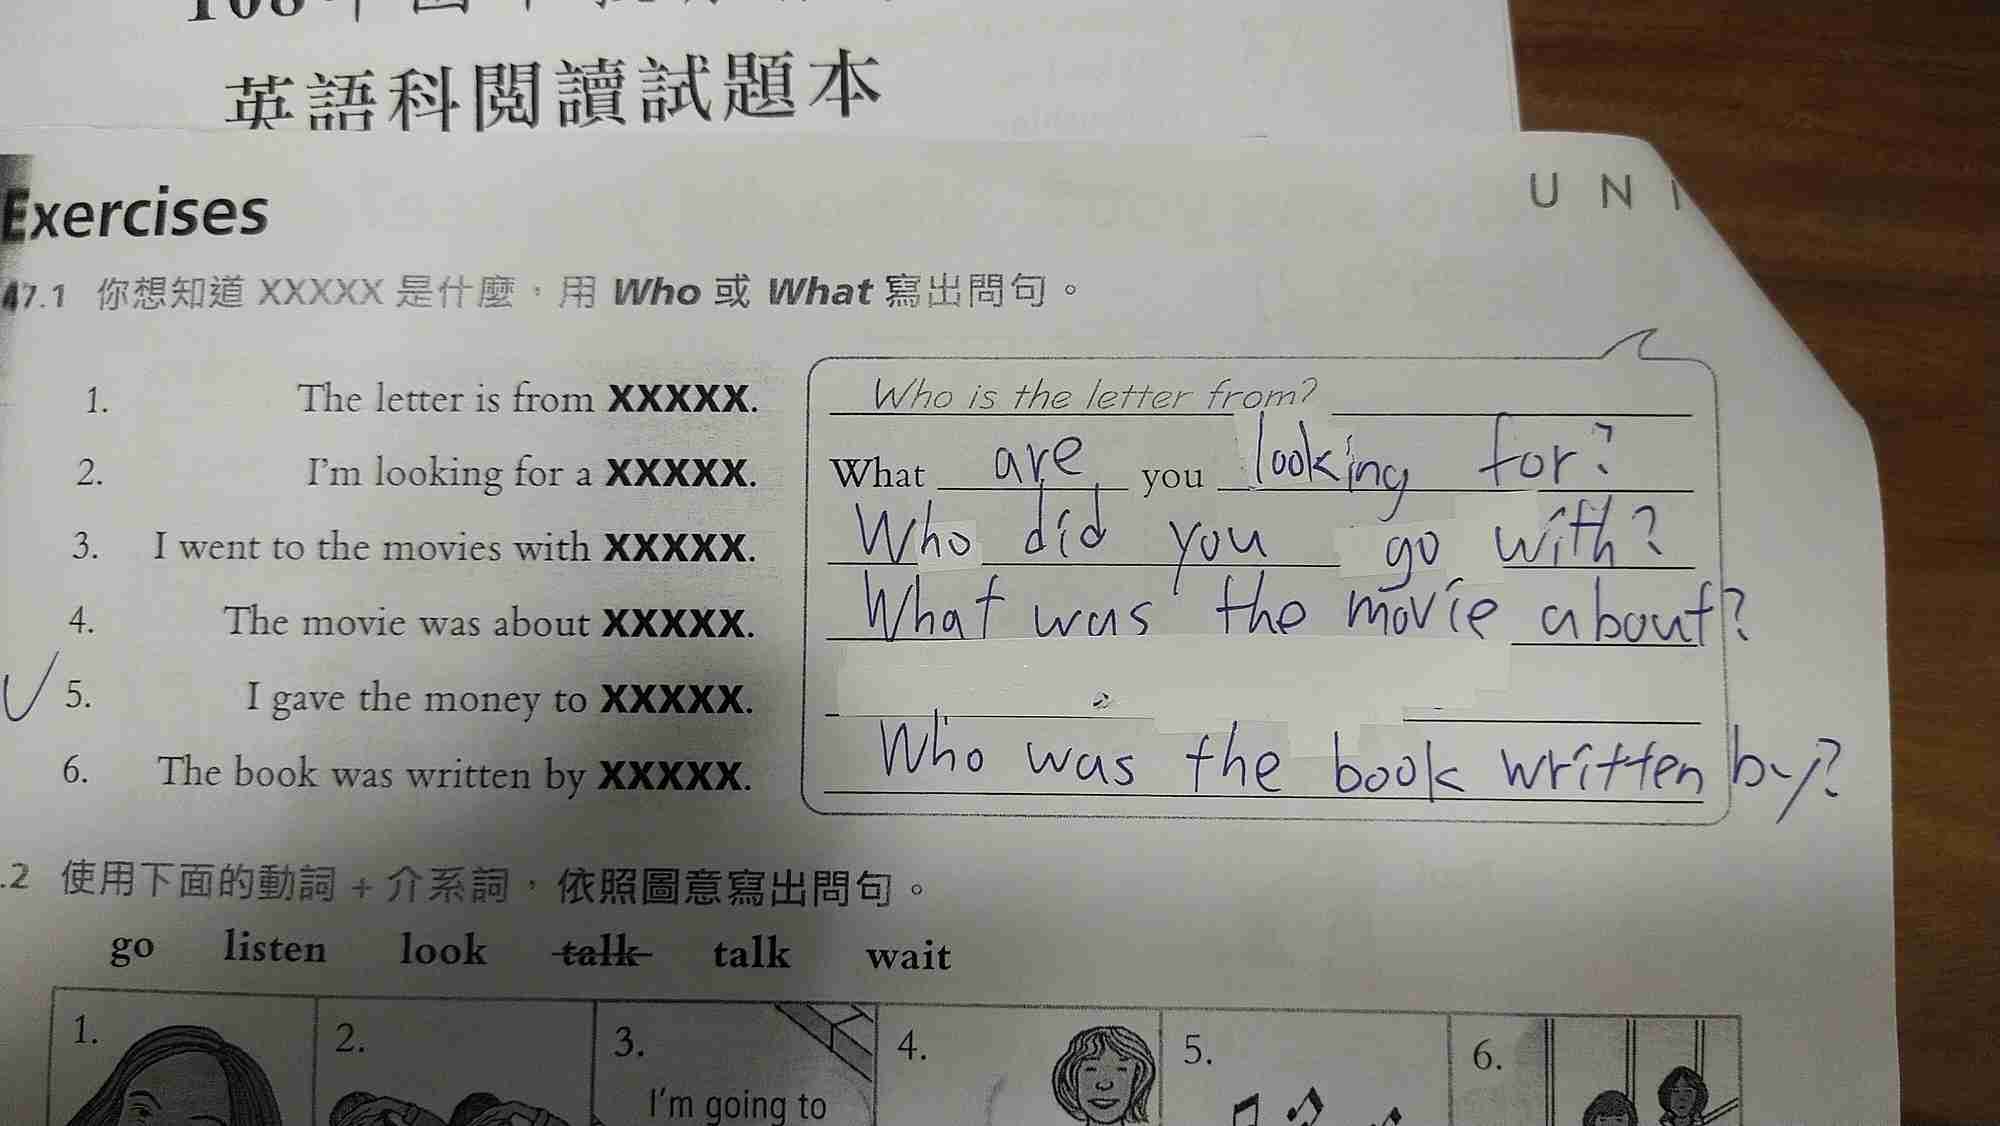 英語科閱讀試題本
Exercises
UNI
47.1 你想知道 XXXXX 是什麼,用 Who 或 What 寫出問句。
1. The letter is from XXXXX. Who is the letter from?
2. I'm looking for a XXXXX. What are you looking for?
3. I went to the movies with XXXXX. Who did you go with?
4. The movie was about XXXXX. What was the movie about?
5. I gave the money to XXXXX.
6. The book was written by XXXXX. Who was the book written by?
.2 使用下面的動詞 + 介系詞,依照圖意寫出問句。
go listen look talk talk wait
1. 2. 3. 4. 5. 6.
I'm going to